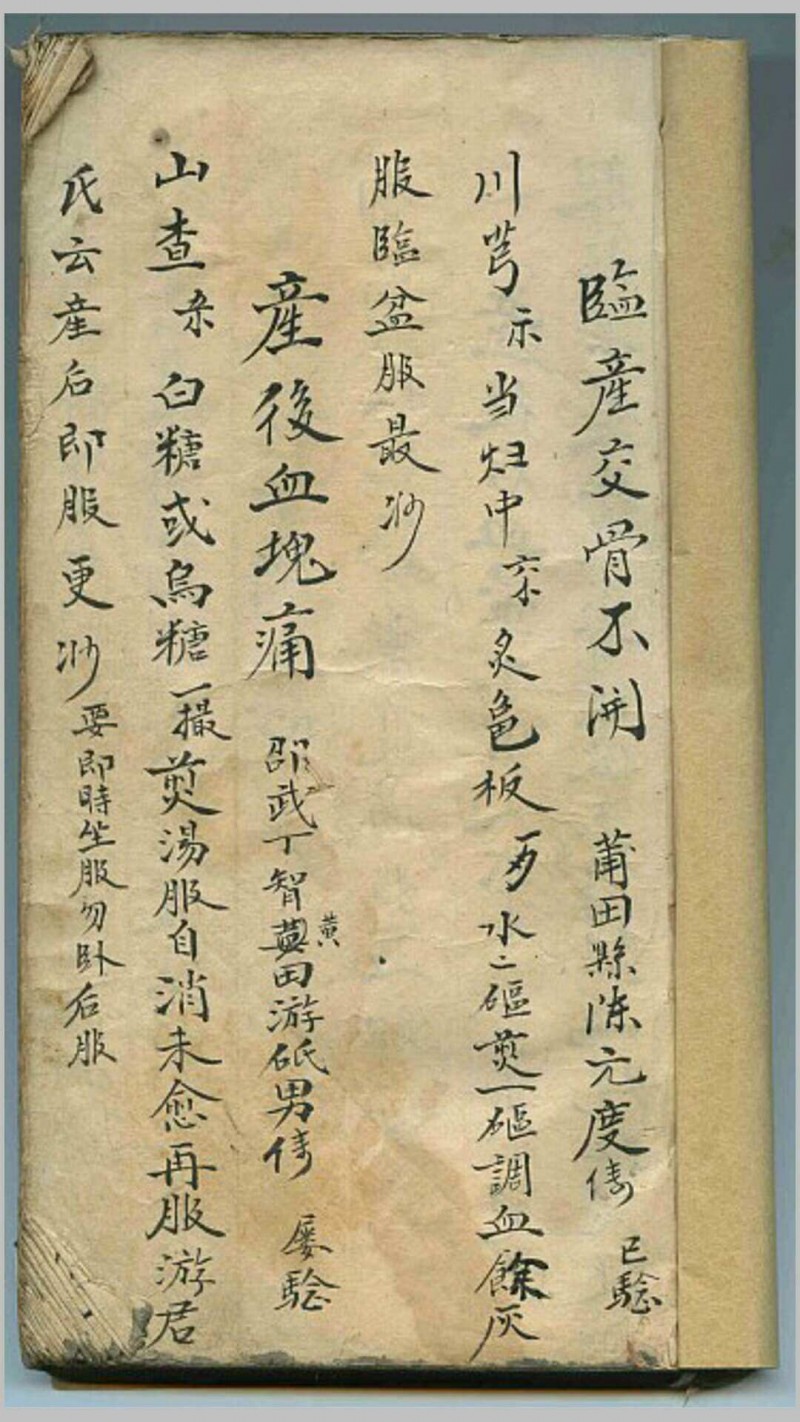 臨產交骨不開 莆田縣陈元度傳 已驗
川芎 当归中 炙龟板 水二碗煎一碗調血餘灰
服臨盆服最妙
產後血塊痛 邵武丁智黄田游砥男傳 屡驗
山查 白糖或烏糖一撮煎湯服自消未愈再服游君
氏云產后即服更妙 要即時坐服勿卧后服